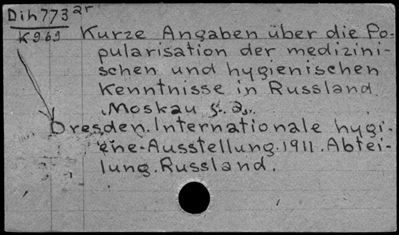 Dih773ar
K969 Kurze Angaben über die Po-
pularisation der medizini-
schen und hygienischen
Kenntnisse in Russland
Moskau s. a.
Dresden. Internationale hygi-
ene-Ausstellung. 1911. Abtei-
lung. Russland.